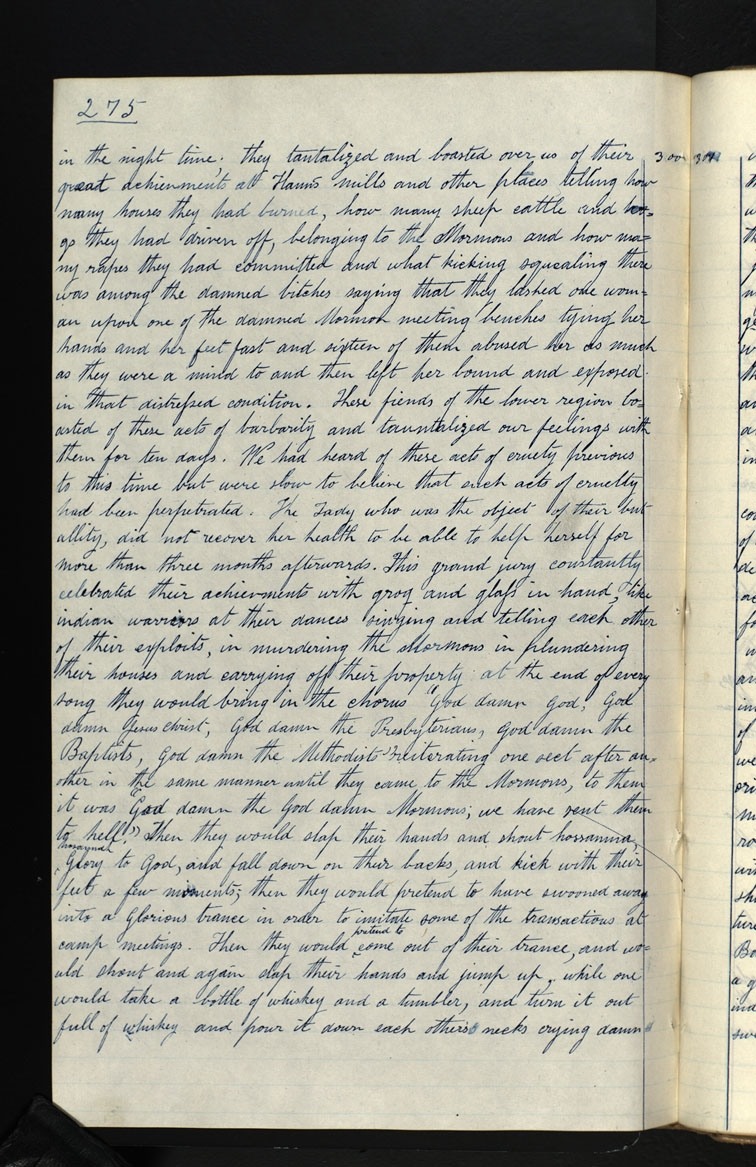 275
in the night time. they tantalized and boasted over us of their
great achienments at Hauns mills and other places telling how
many houses they had burned, how many sheep cattle and ho=
gs they had driven off, belonging to the Mormons and how ma=
ny rapes they had committed and what kicking squealing there
was among the damned bitches saying that they lashed one wom=
an upon one of the damned Mormon meeting benches tying her
hands and her feet fast and sixteen of them abused her as much
as they were a mind to and then left her bound and exposed
in that distressed condition. These fiends of the lower region bo=
asted of these acts of barbarity and tauntalized our feelings with
them for ten days. We had heard of these acts of cruety previous
to this time but were slow to believe that such acts of cruelty
had been perpetrated. The Lady who was the object of their but
allity, did not recover her health to be able to help herself for
more than three months afterwards. This grand jury constantly
celebrated their achievments with grog and glass in hand, like
indian warriors at their dances singing and telling each other
of their exploits, in murdering the Mormons in plundering
their houses and carrying off their property. at the end of every
song they would bring in the chorus "God damn God, God
damn Jesus christ, God damn the Presbyterians, God damn the
Baptists, God damn the Methodists" reiterating one sect after an=
other in the same manner until they came to the Mormons, to them
it was "God damn the God damn Mormons; we have sent them
to hell." Then they would slap their hands and shout hossanna,
hosannah
Glory to God, and fall down on their backs, and kick with their
feet a few moments; then they would pretend to have swooned away
into a Glorious trance in order to imitate some of the transactions at
pretend to
camp meetings. Then they would come out of their trance, and wo=
uld shout and again slap their hands and jump up, while one
would take a bottle of whiskey and a tumbler, and turn it out
full of whiskey and pour it down each others necks crying damn